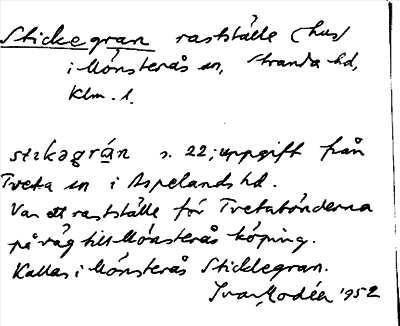 Stickegran rastställe (hus)
i Mönsterås sn, Stranda hd,
Klm. l.
stikəgrán s. 22; uppgift från
Tveta sn i Aspelands hd.
Var ett rastställe för Tvetabönderna
på väg till Mönsterås köping.
Kallas i Mönsterås Sticklegran.
Ivar Modéer 1952